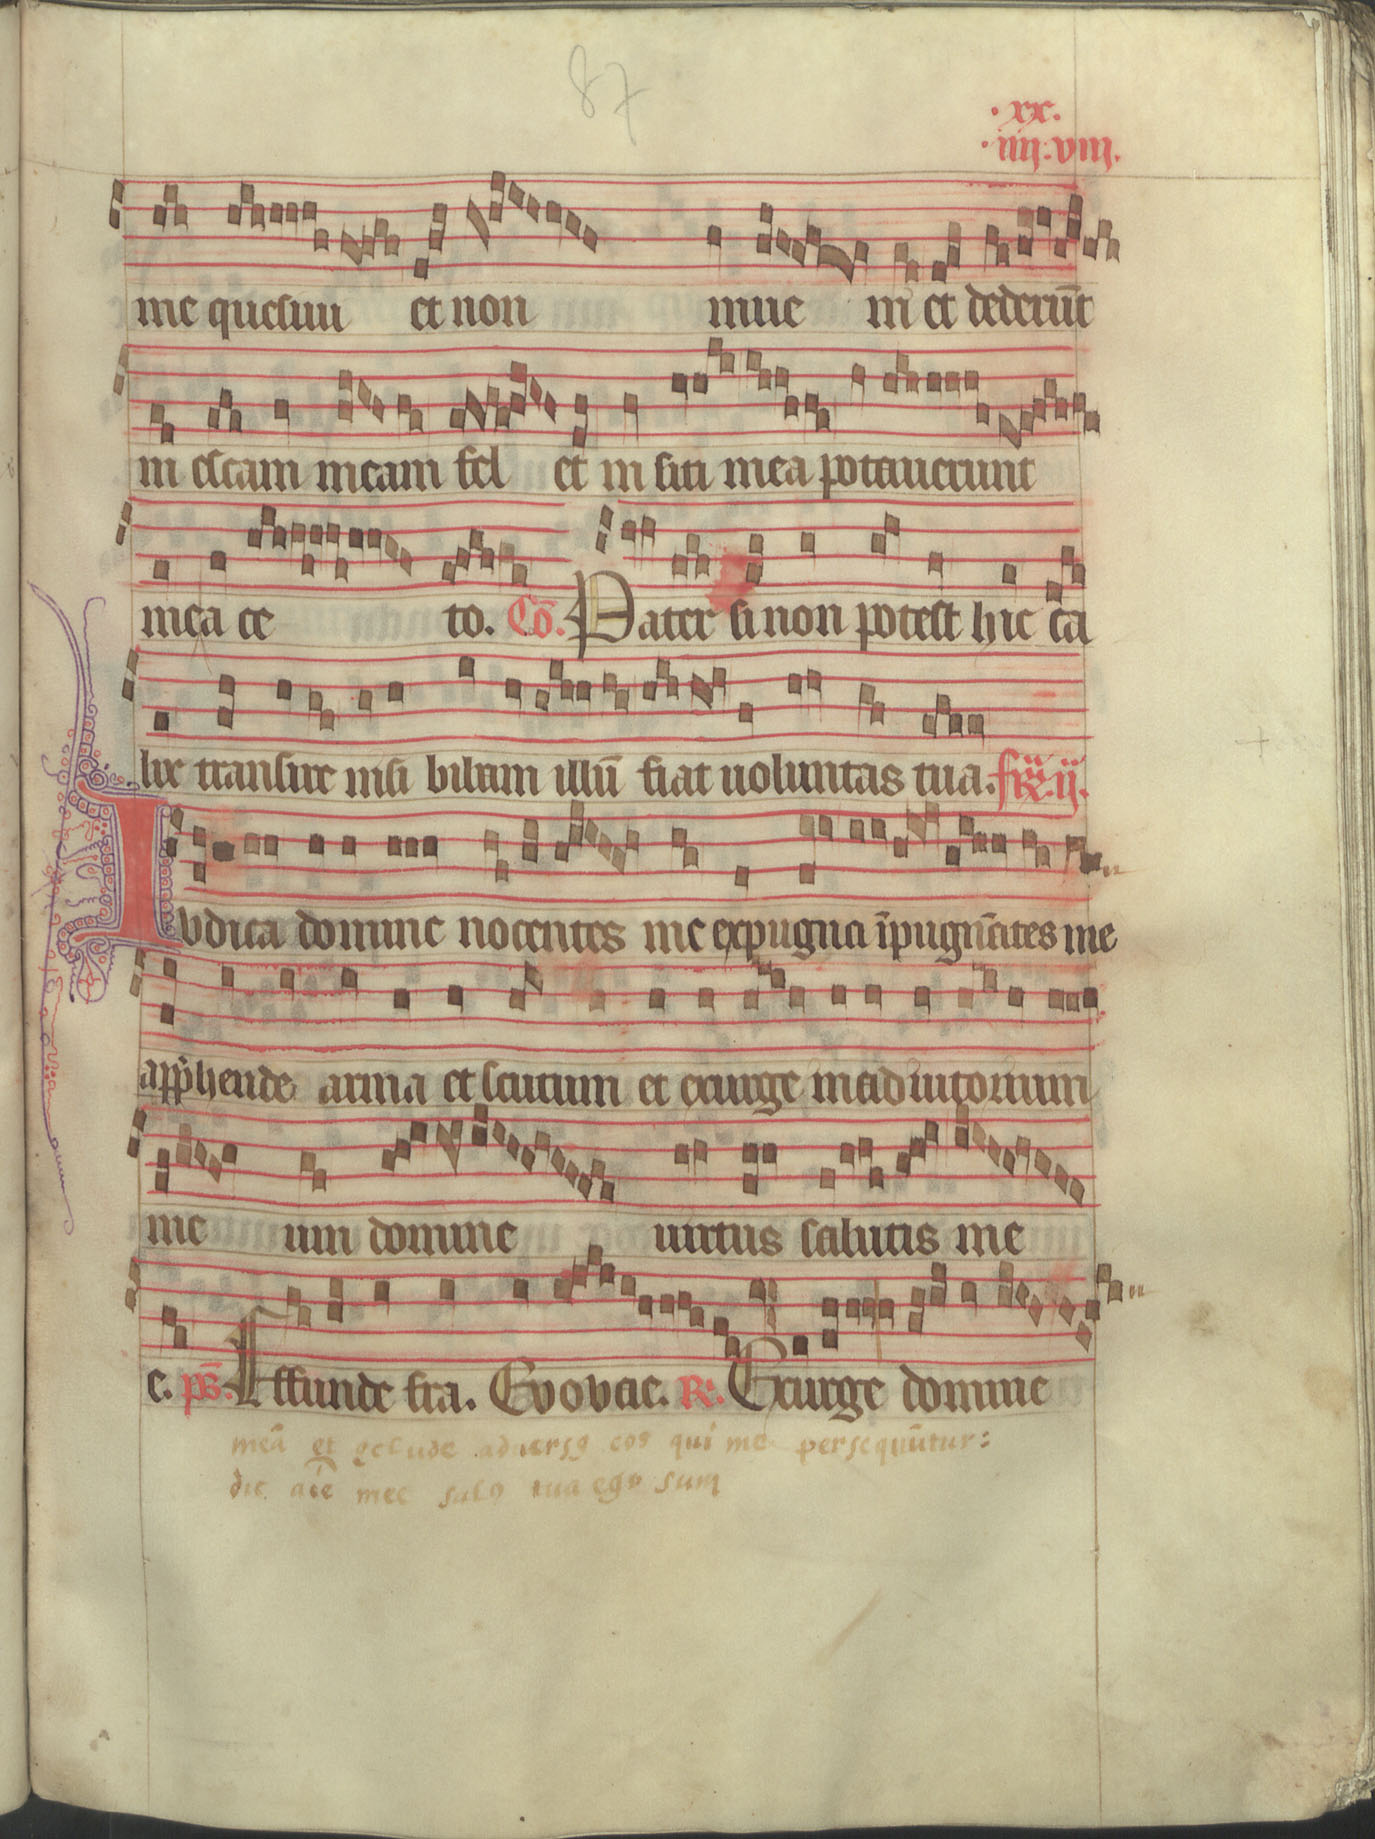 87
·xx·
·iiij·viij·
me quesiui et non inue ni et dederūt
in escam meam fel et in siti mea potauerunt
mea ce to. Cō. Pater si non potest hic ca
lix transire nisi bibam illū fiat uoluntas tua. fr̄. ij.
Iudica domine nocentes me expugna īpugnātes me
app̄hende arma et scutum et exurge in adiutorium
me um domine uirtus salutis me
e. ps̄. Effunde fra. Evovae. R. Exurge domine
meā et ɔclude aduersꝰ eos qui me persequūtur:
dic aīe mee salꝰ tua ego sum